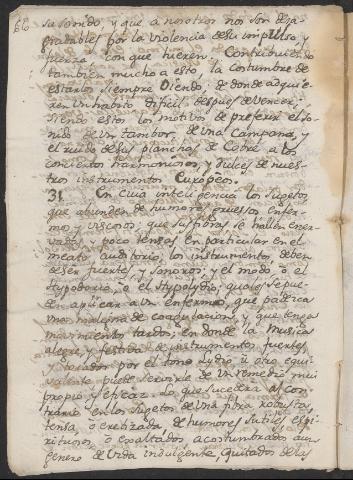 su sonido, y que à nosotros nos son desa-
gradables por la violencia de su impulso, y
fuerza con que hieren. Contribuiendo
tambien mucho a esto, la costumbre de
estarlos siempre oiendo, de donde adquie-
ren un habito dificil despues de vencer;
siendo estos los motivos de preferir el so-
nido de un tambor, de una Campana, y
el ruido de sus planchas de Cobre a los
conciertos harmoniosos, y dulces de nues-
tros instrumentos Europeos.
31. En cuia inteligencia los sugetos
que abunden de humores gruesos enfer-
mos y viscosos, que sus fibras se hallen ener-
vadas, y poco tensas en particular en el
meato auditorio; los instrumentos, deben
de ser fuertes, y sonoros; y el modo, ò el
Hypodorio, ò el Hypolydio; quales se pue-
den aplicar a un enfermo, que padezca
una maligna de coagulacion, y que tenga
movimientos tardos; en donde la Musica
alegre, y festiva de instrumentos fuertes,
y tocados por el tono Lydio ù otro equi-
valente puede servirle de un remedio mui
propio y eficaz. Lo que sucedera al con-
trario en los sugetos de una fibra robusta,
tensa, o eretizada, de humores sutiles, espi-
rituosos o exaltados acostumbrados a un
genero de vida indulgente, quitados de las